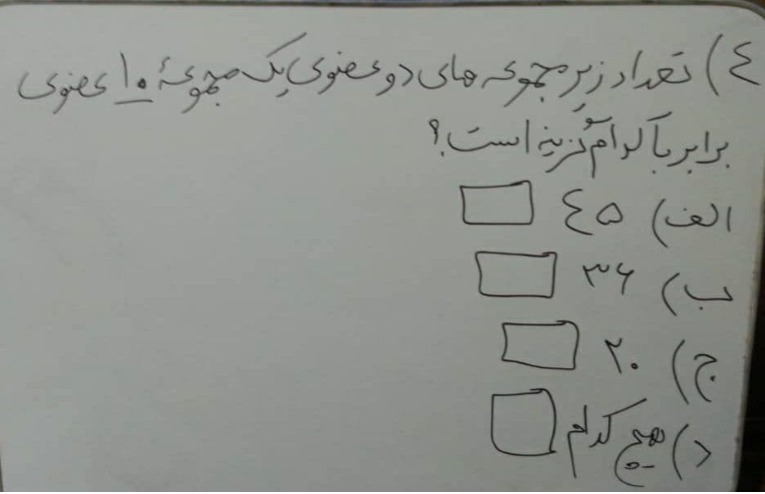 ٤) تعداد زیرمجموعه های دو عضوی یک مجموعهٔ ۱۰ عضوی
برابر با کدام گزینه است؟
الف) ٤۵
ب) ۳۶
ج) ۲۰
د) هیچ کدام